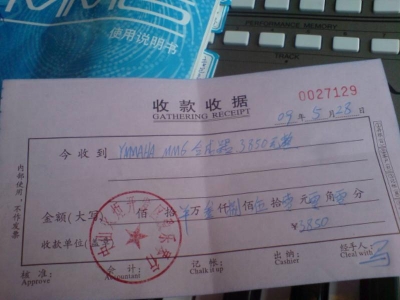 MM6
使用说明书
PERFORMANCE MEMORY
收款收据
GATHERING RECEIPT
0027129
09年5月28日
今收到 YAMAHA MM6 合成器 3850元整
内部使用，不作发票
金额(大写) 佰 拾 万 叁仟捌佰伍拾零元零角零分
¥3850
收款单位(盖章)
核准: 会计: 记帐: 出纳: 经手人:
Approve Accountant Chalk it up Cashier Cleal with